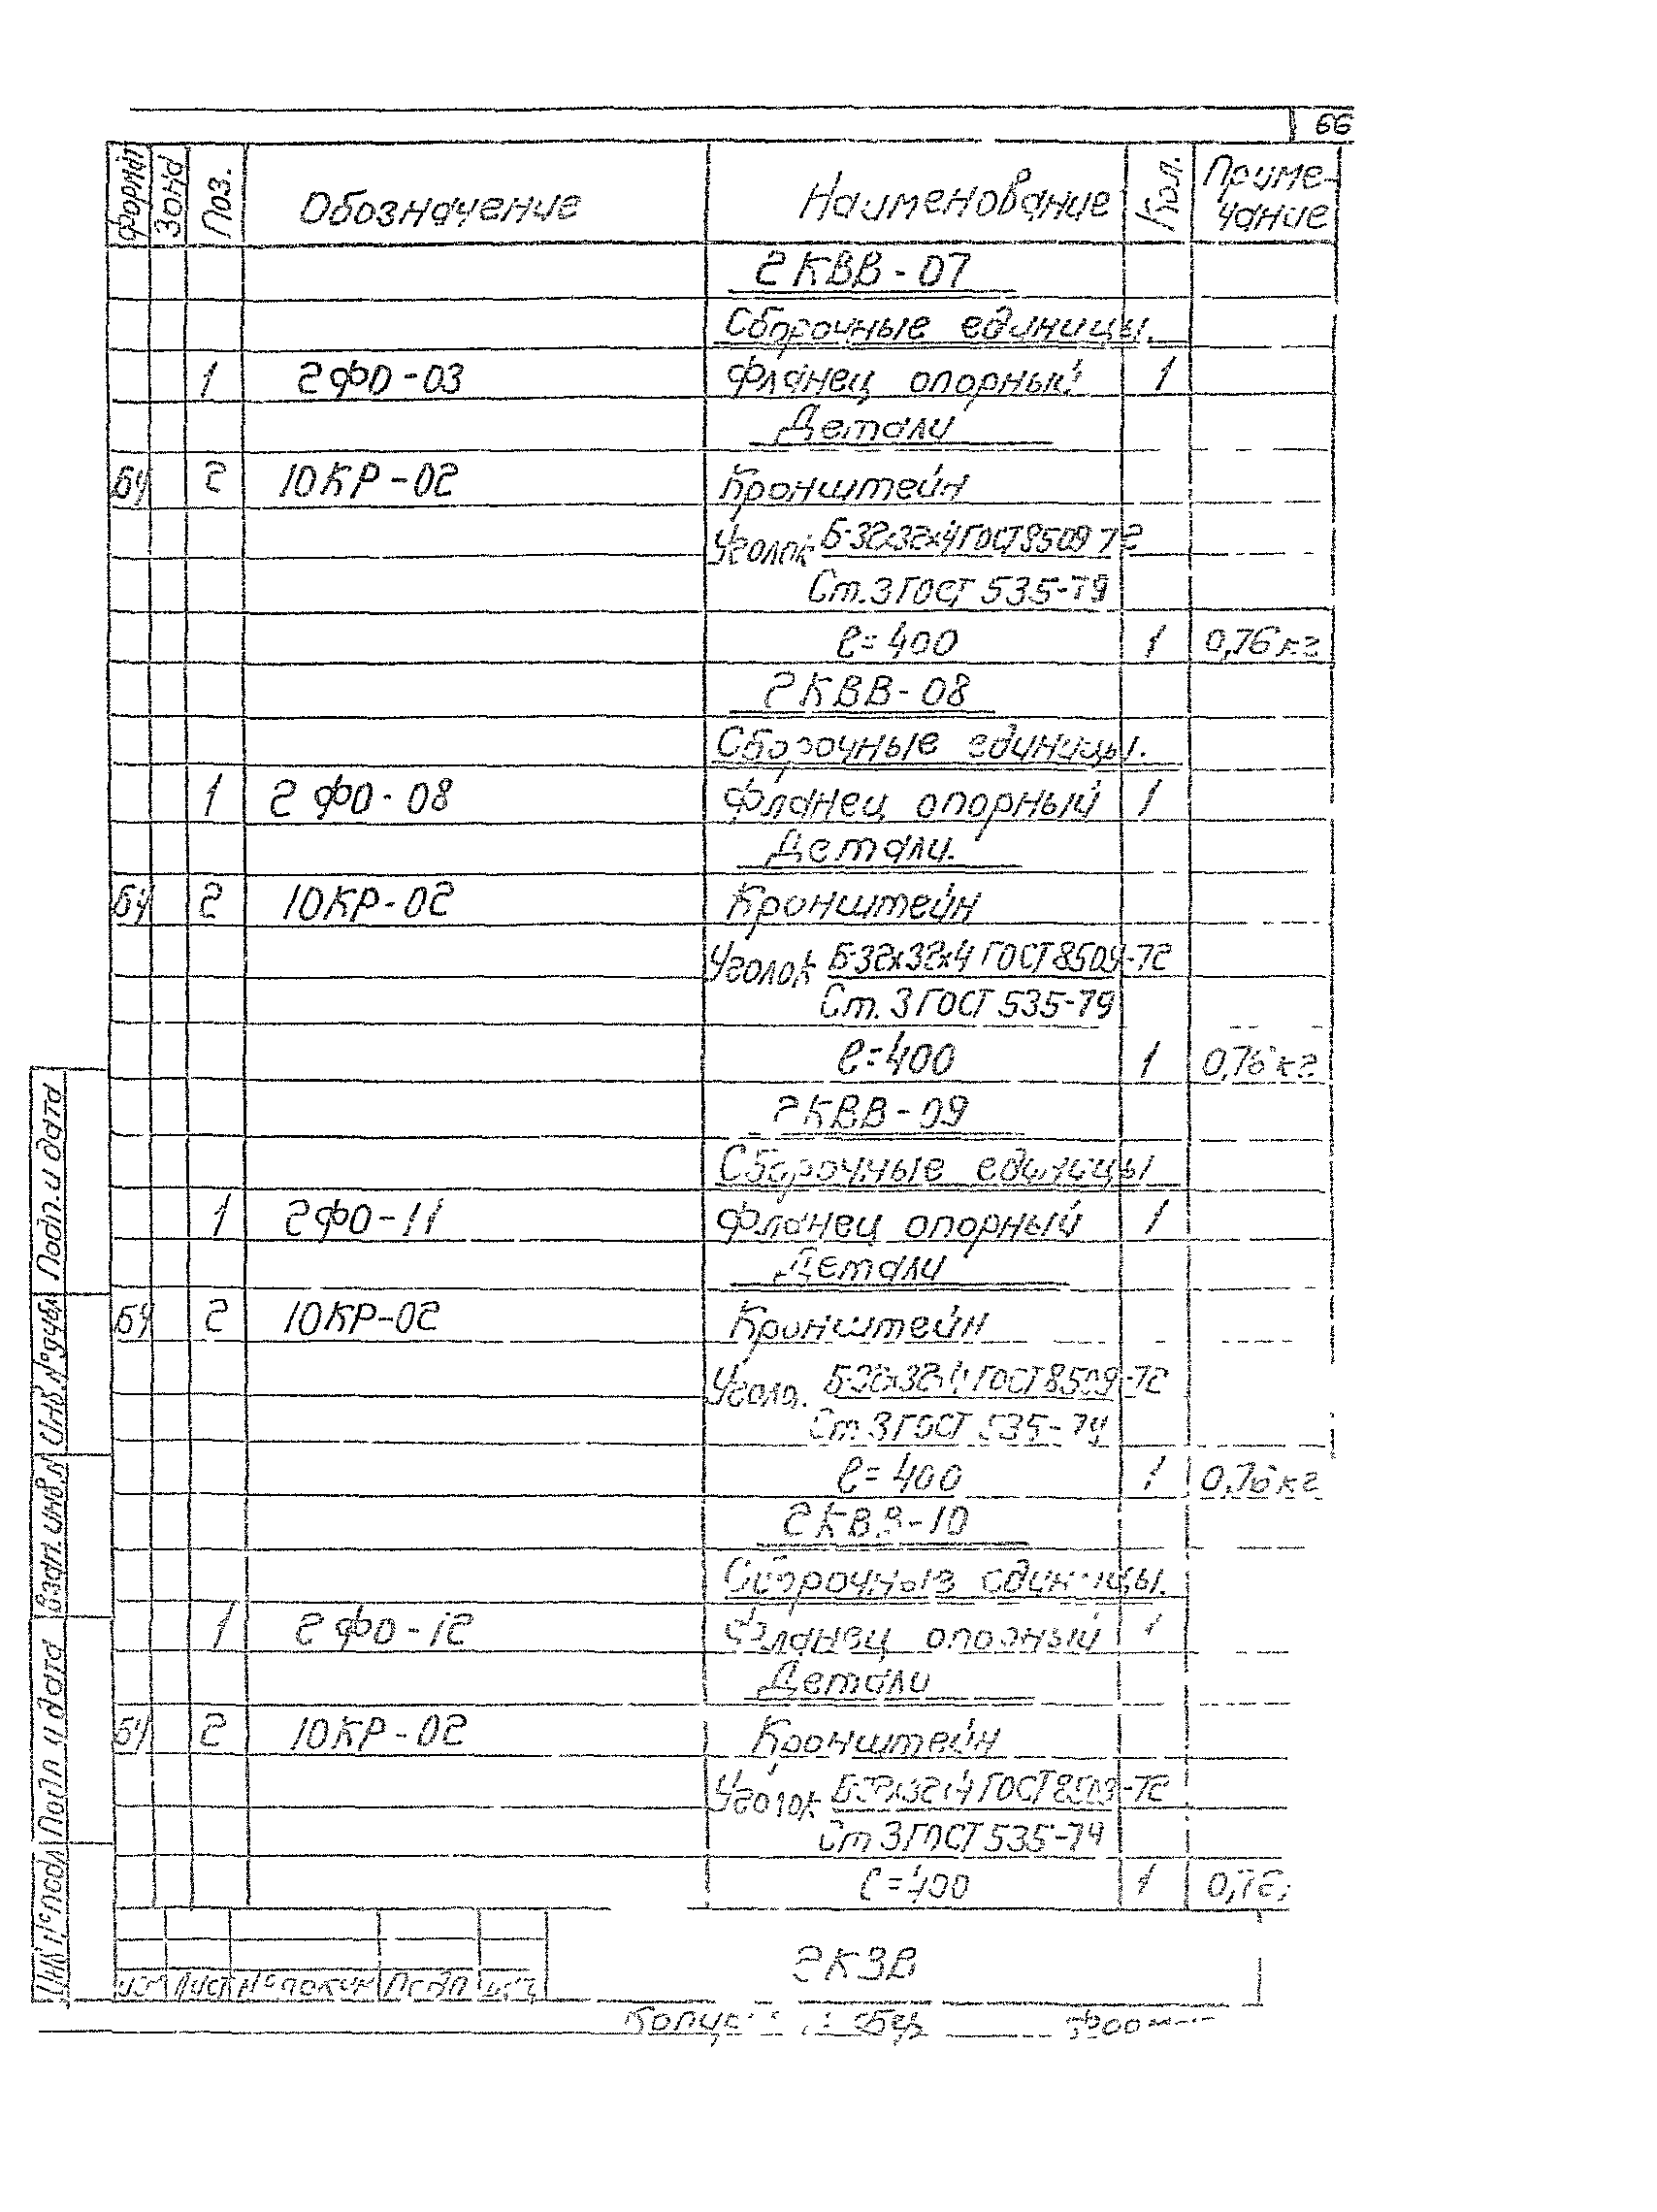 66
Формат Зона Поз. Обозначение Наименование Кол. Приме-
чание
2КВВ-07
Сборочные единицы.
1 2ФО-03 Фланец опорный 1
Детали
БЧ 2 10КР-02 Кронштейн
Уголок Б-32х32х4 ГОСТ 8509-72
Ст.3 ГОСТ 535-79
ℓ=400 1 0,76 кг
2КВВ-08
Сборочные единицы.
1 2ФО-08 Фланец опорный 1
Детали.
БЧ 2 10КР-02 Кронштейн
Уголок Б-32х32х4 ГОСТ 8509-72
Ст.3 ГОСТ 535-79
ℓ=400 1 0,76 кг
2КВВ-09
Сборочные единицы
1 2ФО-11 Фланец опорный 1
Детали
БЧ 2 10КР-02 Кронштейн
Уголок Б-32х32х4 ГОСТ 8509-72
Ст 3 ГОСТ 535-79
ℓ=400 1 0,76 кг
2КВВ-10
Сборочные единицы.
1 2ФО-12 Фланец опорный 1
Детали
БЧ 2 10КР-02 Кронштейн
Уголок Б-32х32х4 ГОСТ 8509-72
Ст 3 ГОСТ 535-79
ℓ=400 1 0,76
2КВВ
Изм Лист № докум Подп Дата
Инв № подл
Подп и дата
Взам. инв. №
Инв № дубл
Подп. и дата